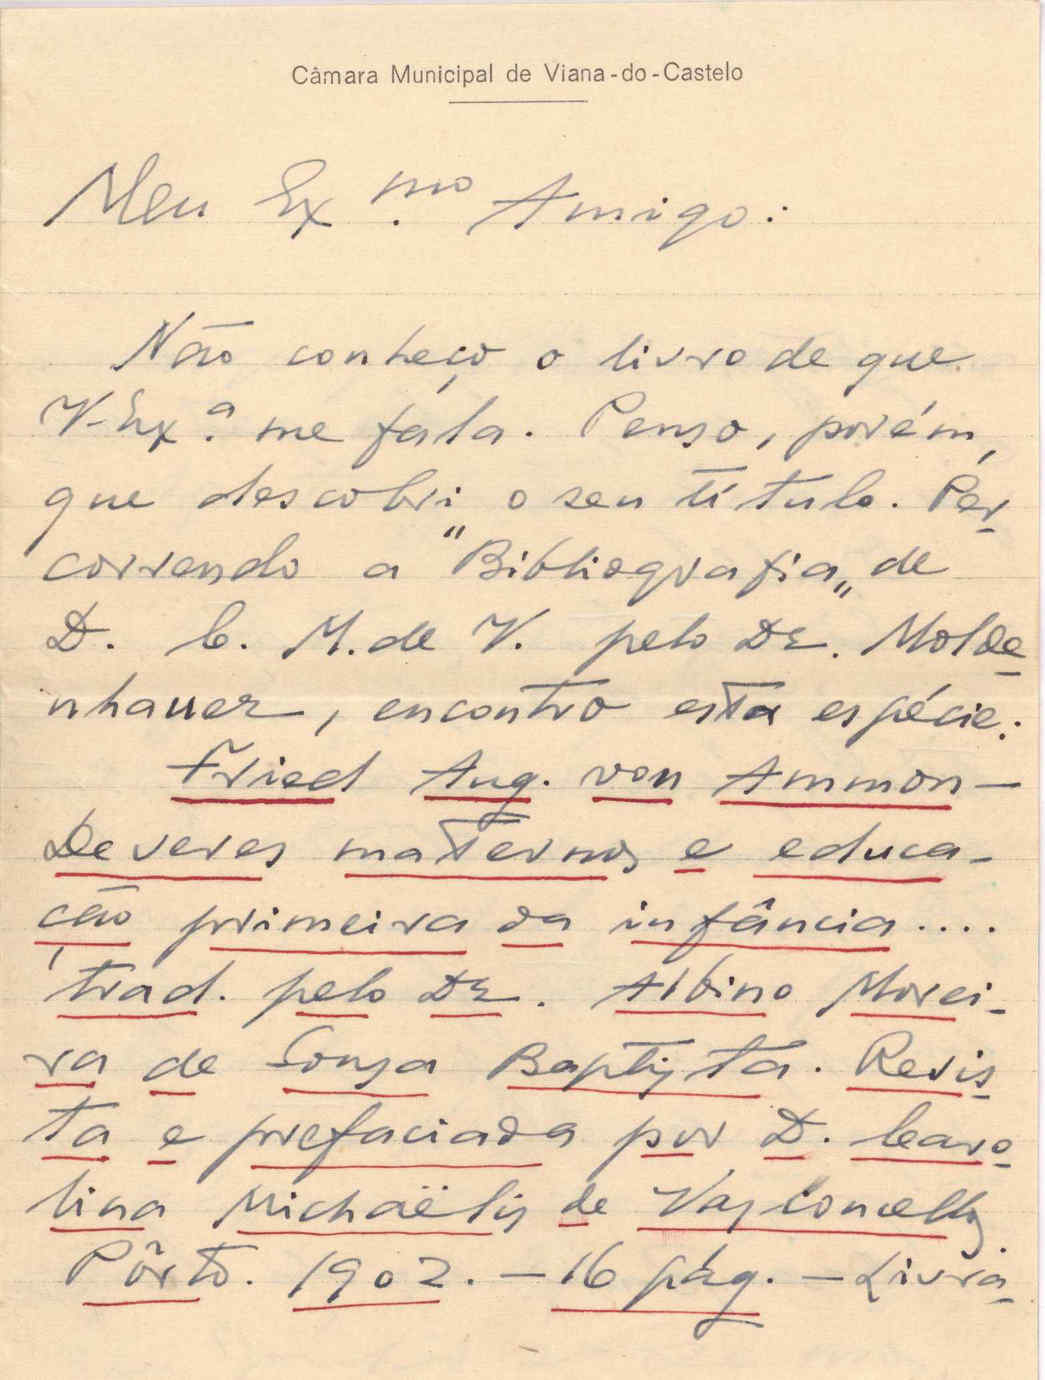 Câmara Municipal de Viana-do-Castelo
Meu Ex.mo Amigo:
Não conheço o livro de que
V. Ex.ª me fala. Penso, porém,
que descobri o seu título. Per-
correndo a "Bibliografia„ de
D. C. M. de V. pelo Dr. Molde-
nhauer, encontro esta espécie:
Fried Aug. von Ammon—
Deveres maternos e educa-
ção primeira da infância....
trad. pelo Dr. Albino Morei-
ra de Sousa Baptista. Revis-
ta e prefaciada por D. Caro-
lina Michaëlis de Vasconcellos.
Pôrto. 1902. — 16 pág. — Livra-